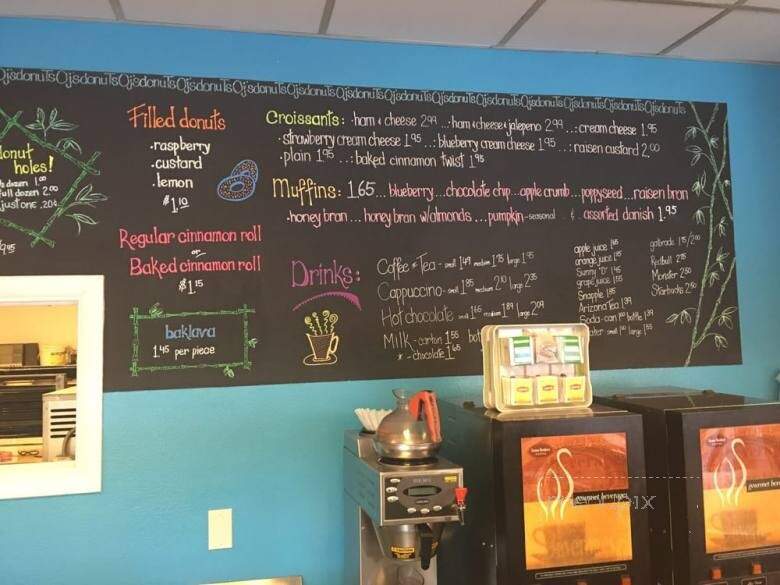 OjsdonuTsOjsdonuTsOjsdonuTsOjsdonuTsOjsdonuTsOjsdonuTsOjsdonuTsOjsdonuTsOjsdonuTsOjsdonuTsOjsdonuTs
donut
holes!
½ dozen 1.00
full dozen 2.00
just one .20¢
Filled donuts
.raspberry
.custard
.lemon
$1.10
Regular cinnamon roll
or
Baked cinnamon roll
$1.15
baklava
1.45 per piece
Croissants: .ham & cheese 2.99 ...ham & cheese & jalepeno 2.99 ...: cream cheese 1.95
.strawberry cream cheese 1.95 ...: blueberry cream cheese 1.95 ...: raisen custard 2.00
.plain 1.95 ...: baked cinnamon twist 1.95
Muffins: 1.65 ... blueberry...chocolate chip...apple crumb...poppyseed...raisen bran
.honey bran ... honey bran w/almonds ...pumpkin-seasonal & assorted danish 1.95
Drinks:
Coffee & Tea - small 1.49 medium 1.75 large 1.95
Cappuccino - small 1.85 medium 2.10 large 2.35
Hot chocolate small 1.65 medium 1.89 large 2.09
Milk - carton 1.55
chocolate 1.65
apple juice 1.65
orange juice 1.85
Sunny "D" 1.45
grape juice 1.85
Snapple 1.85
Arizona Tea 1.39
Soda-can 1.00 bottle 1.39
small 1.00 large 1.55
gatorade 1.75/2.00
Redbull 2.75
Monster 2.50
Starbucks 2.50
gourmet beverages
gourmet